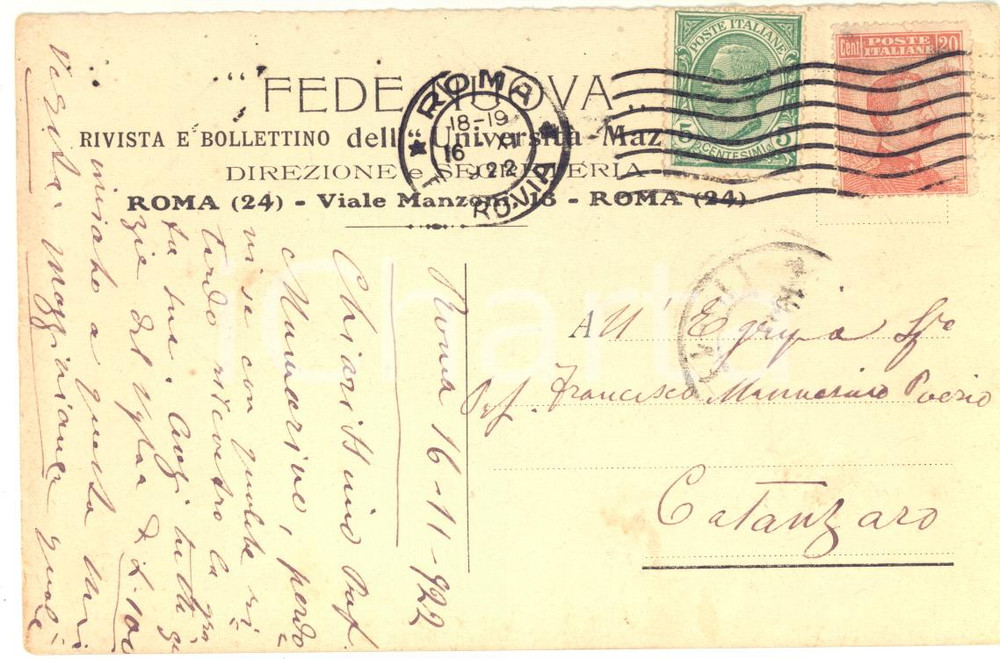 " FEDE NUOVA "
RIVISTA E BOLLETTINO della Università Maz
DIREZIONE e SEGRETERIA
ROMA (24) - Viale Manzoni, 13 - ROMA (24)
ROMA
18-19
16 XI
922
FERROVIA
POSTE ITALIANE
5 CENTESIMI 5
Cent POSTE ITALIANE 20
All' Egregio Sig
Prof. Francesco Mannarino Poerio
Catanzaro
Roma 16-11-922
Chiarissimo Prof.
Mannarino, perdo
ni se con qualche ri
tardo riscontro la gra
ta sua. Anzi tutto gra
zie del vaglia di L. 100
inviato a questa Uni
versità Mazziniana quale
iCharta